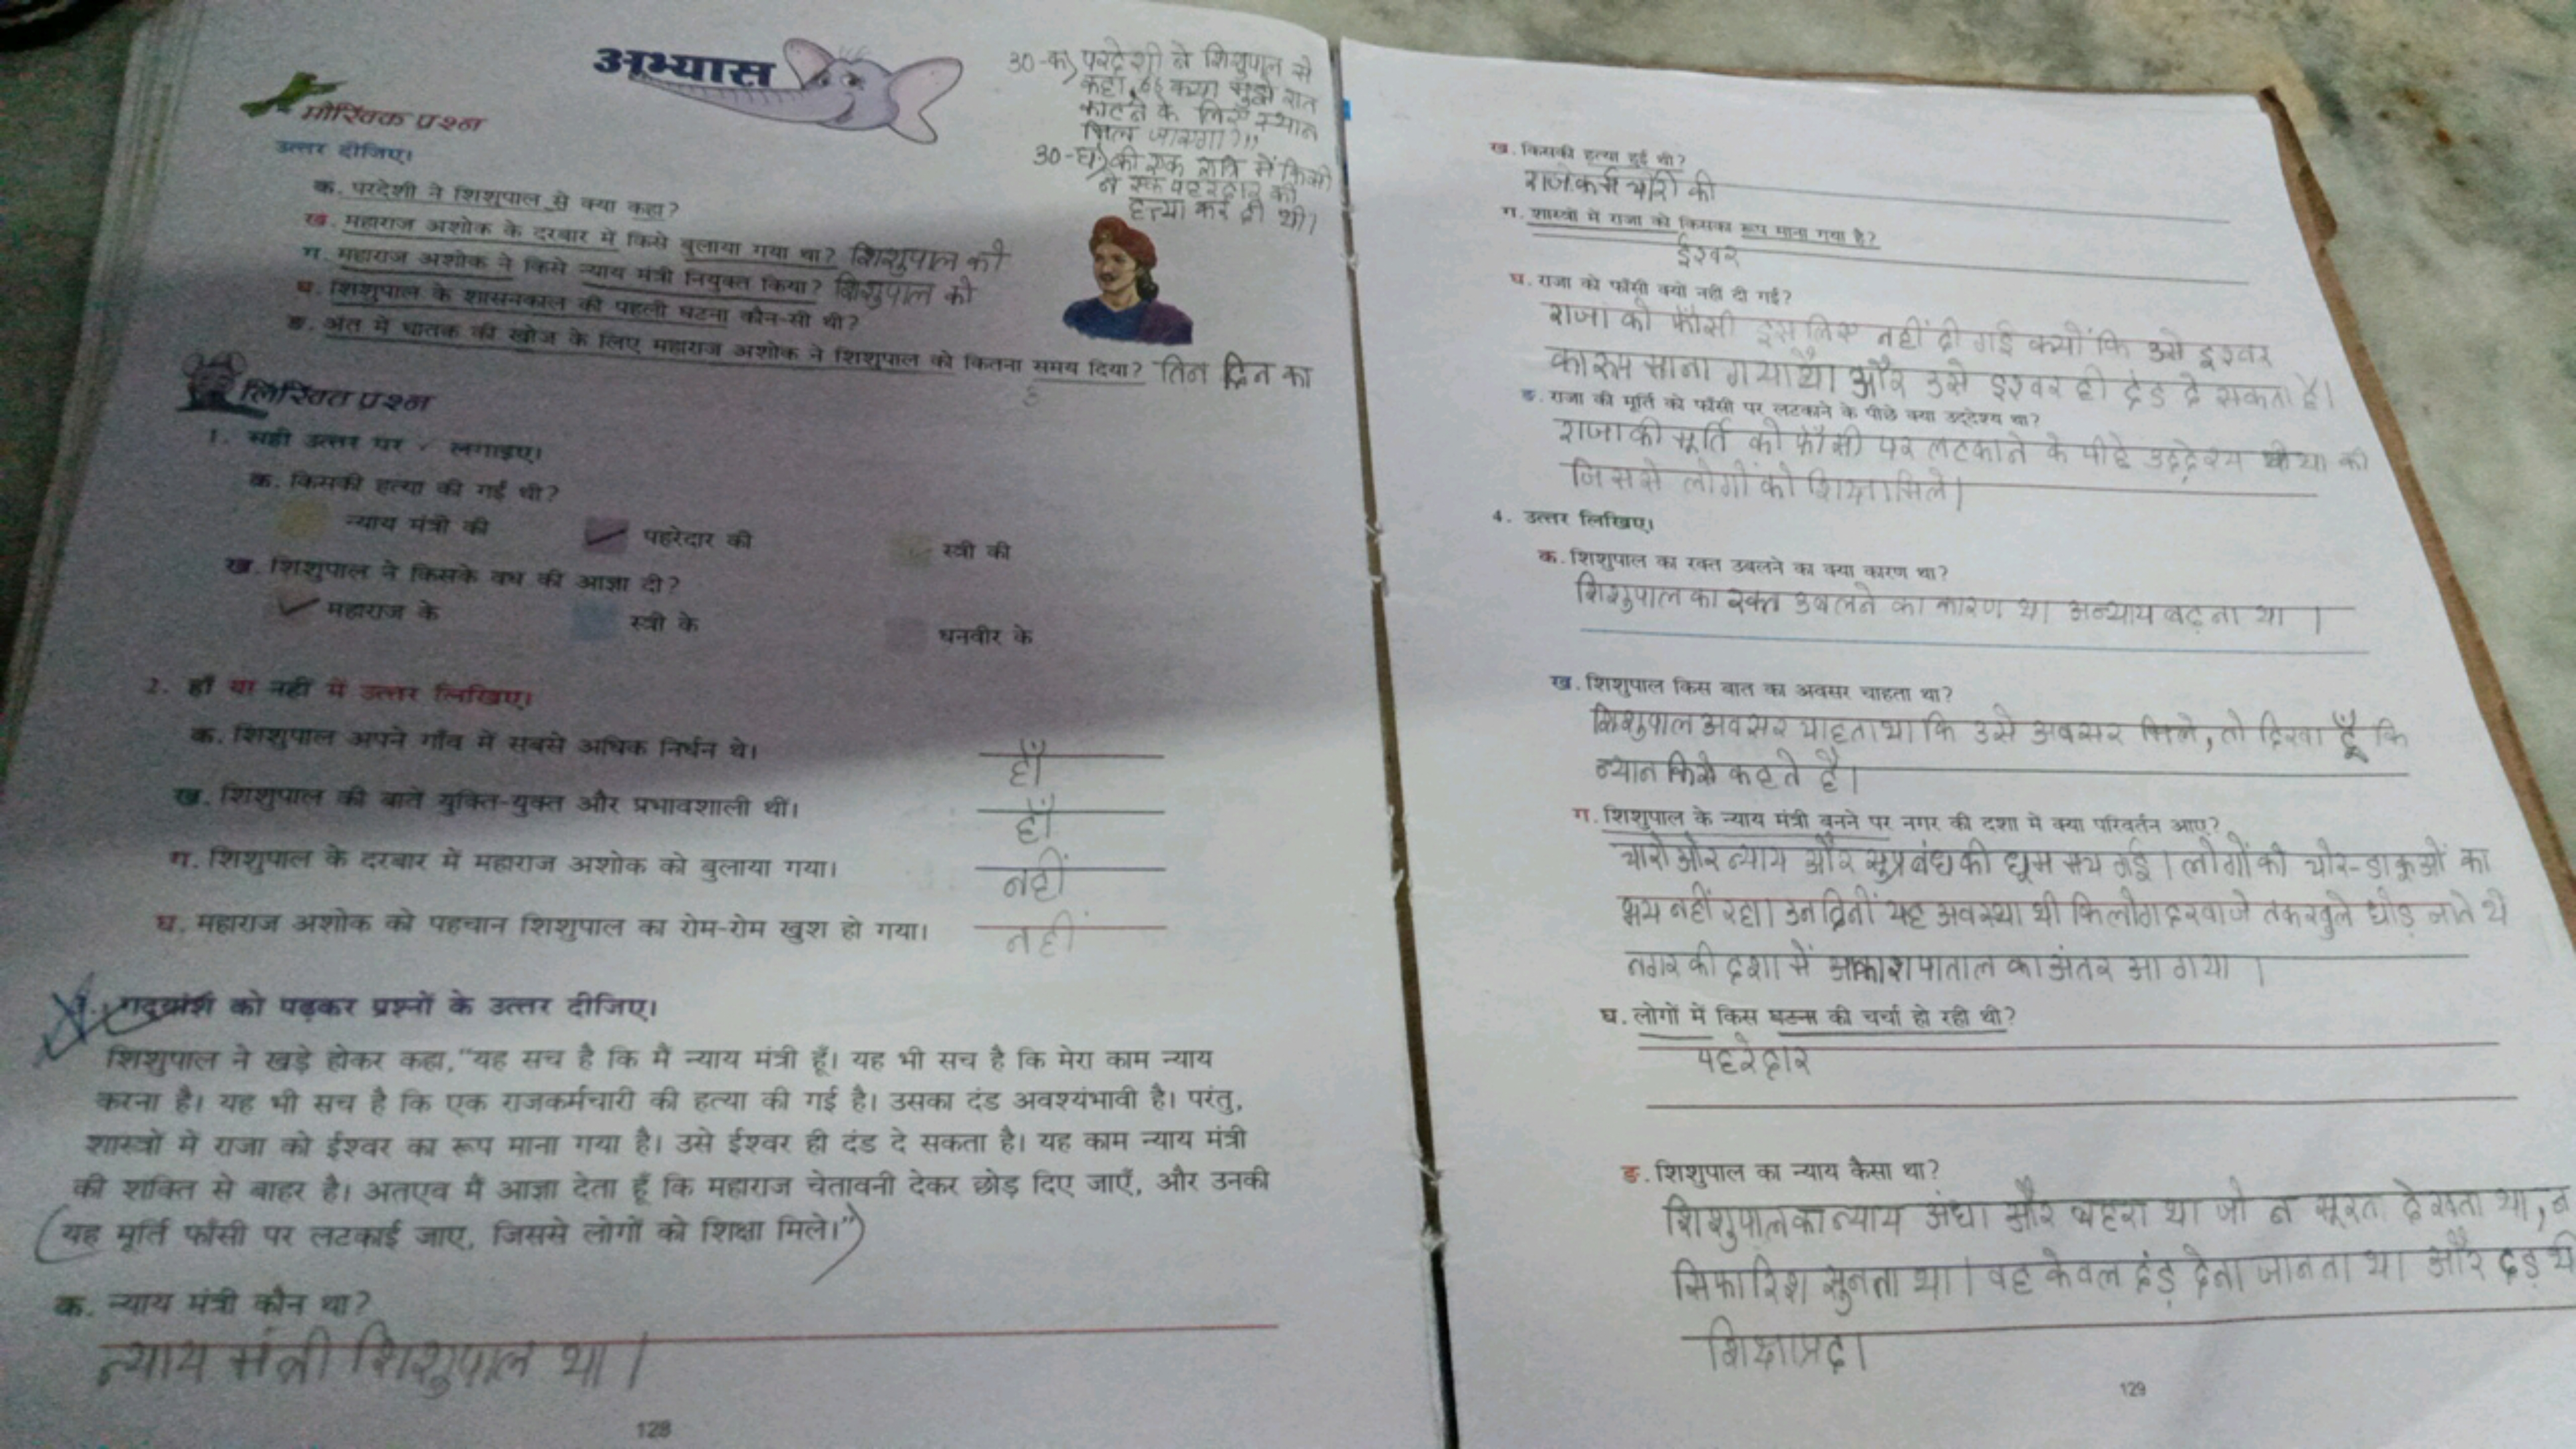 अभ्यास
30-क) परदेशी ने शिशुपाल से
कहा, "क्या मुझे रात
काटने के लिए स्थान
मिल जाएगा?"
30-घ) की एक रात्रि में किसी
ने एक पहरेदार की
हत्या कर दी थी।
मौखिक प्रश्न
उत्तर दीजिए।
क. परदेशी ने शिशुपाल से क्या कहा?
ख. महाराज अशोक के दरबार में किसे बुलाया गया था? शिशुपाल को
ग. महाराज अशोक ने किसे न्याय मंत्री नियुक्त किया? शिशुपाल को
घ. शिशुपाल के शासनकाल की पहली घटना कौन-सी थी?
ङ. अंत में घातक की खोज के लिए महाराज अशोक ने शिशुपाल को कितना समय दिया? तिन दिन का
लिखित प्रश्न
1. सही उत्तर पर ✓ लगाइए।
क. किसकी हत्या की गई थी?
न्याय मंत्री की ✓ पहरेदार की स्त्री की
ख. शिशुपाल ने किसके वध की आज्ञा दी?
✓ महाराज के स्त्री के धनवीर के
2. हाँ या नहीं में उत्तर लिखिए।
क. शिशुपाल अपने गाँव में सबसे अधिक निर्धन थे। हाँ
ख. शिशुपाल की बातें युक्ति-युक्त और प्रभावशाली थीं। हाँ
ग. शिशुपाल के दरबार में महाराज अशोक को बुलाया गया। नहीं
घ. महाराज अशोक को पहचान शिशुपाल का रोम-रोम खुश हो गया। नहीं
गद्यांश को पढ़कर प्रश्नों के उत्तर दीजिए।
शिशुपाल ने खड़े होकर कहा, "यह सच है कि मैं न्याय मंत्री हूँ। यह भी सच है कि मेरा काम न्याय
करना है। यह भी सच है कि एक राजकर्मचारी की हत्या की गई है। उसका दंड अवश्यंभावी है। परंतु,
शास्त्रों में राजा को ईश्वर का रूप माना गया है। उसे ईश्वर ही दंड दे सकता है। यह काम न्याय मंत्री
की शक्ति से बाहर है। अतएव मैं आज्ञा देता हूँ कि महाराज चेतावनी देकर छोड़ दिए जाएँ, और उनकी
(यह मूर्ति फाँसी पर लटकाई जाए, जिससे लोगों को शिक्षा मिले।")
क. न्याय मंत्री कौन था?
न्याय मंत्री शिशुपाल था।
128
ख. किसकी हत्या हुई थी?
राजकर्मचारी की
ग. शास्त्रों में राजा को किसका रूप माना गया है?
ईश्वर
घ. राजा को फाँसी क्यों नहीं दी गई?
राजा को फाँसी इसलिए नहीं दी गई क्योंकि उसे इश्वर
का रूप माना गया था और उसे इश्वर ही दंड दे सकता है।
ङ. राजा की मूर्ति को फाँसी पर लटकाने के पीछे क्या उद्देश्य था?
राजा की मूर्ति को फाँसी पर लटकाने के पीछे उद्देश्य था की
जिससे लोगों को शिक्षा मिले।
4. उत्तर लिखिए।
क. शिशुपाल का रक्त उबलने का क्या कारण था?
शिशुपाल का रक्त उबलने का कारण था अन्याय बढ़ना था।
ख. शिशुपाल किस बात का अवसर चाहता था?
शिशुपाल अवसर चाहता था कि उसे अवसर मिले, तो दिखा दूँ कि
न्यान किसे कहते है।
ग. शिशुपाल के न्याय मंत्री बनने पर नगर की दशा में क्या परिवर्तन आए?
चारो ओर न्याय और सुप्रबंध की धूम मच गई। लोगों को चोर-डाकूओं का
भय नहीं रहा। उन दिनों यह अवस्था थी कि लोग दरवाजे तक खुले छोड़ जाते थे
नगर की दशा में आकाश पाताल का अंतर आ गया।
घ. लोगों में किस घटना की चर्चा हो रही थी?
पहरेदार
ङ. शिशुपाल का न्याय कैसा था?
शिशुपाल का न्याय अंधा और बहरा था जो न सूरत देखता था, न
सिफारिश सुनता था। वह केवल दंड़ देना जानता था और दंड़ भी
शिक्षाप्रद।
129